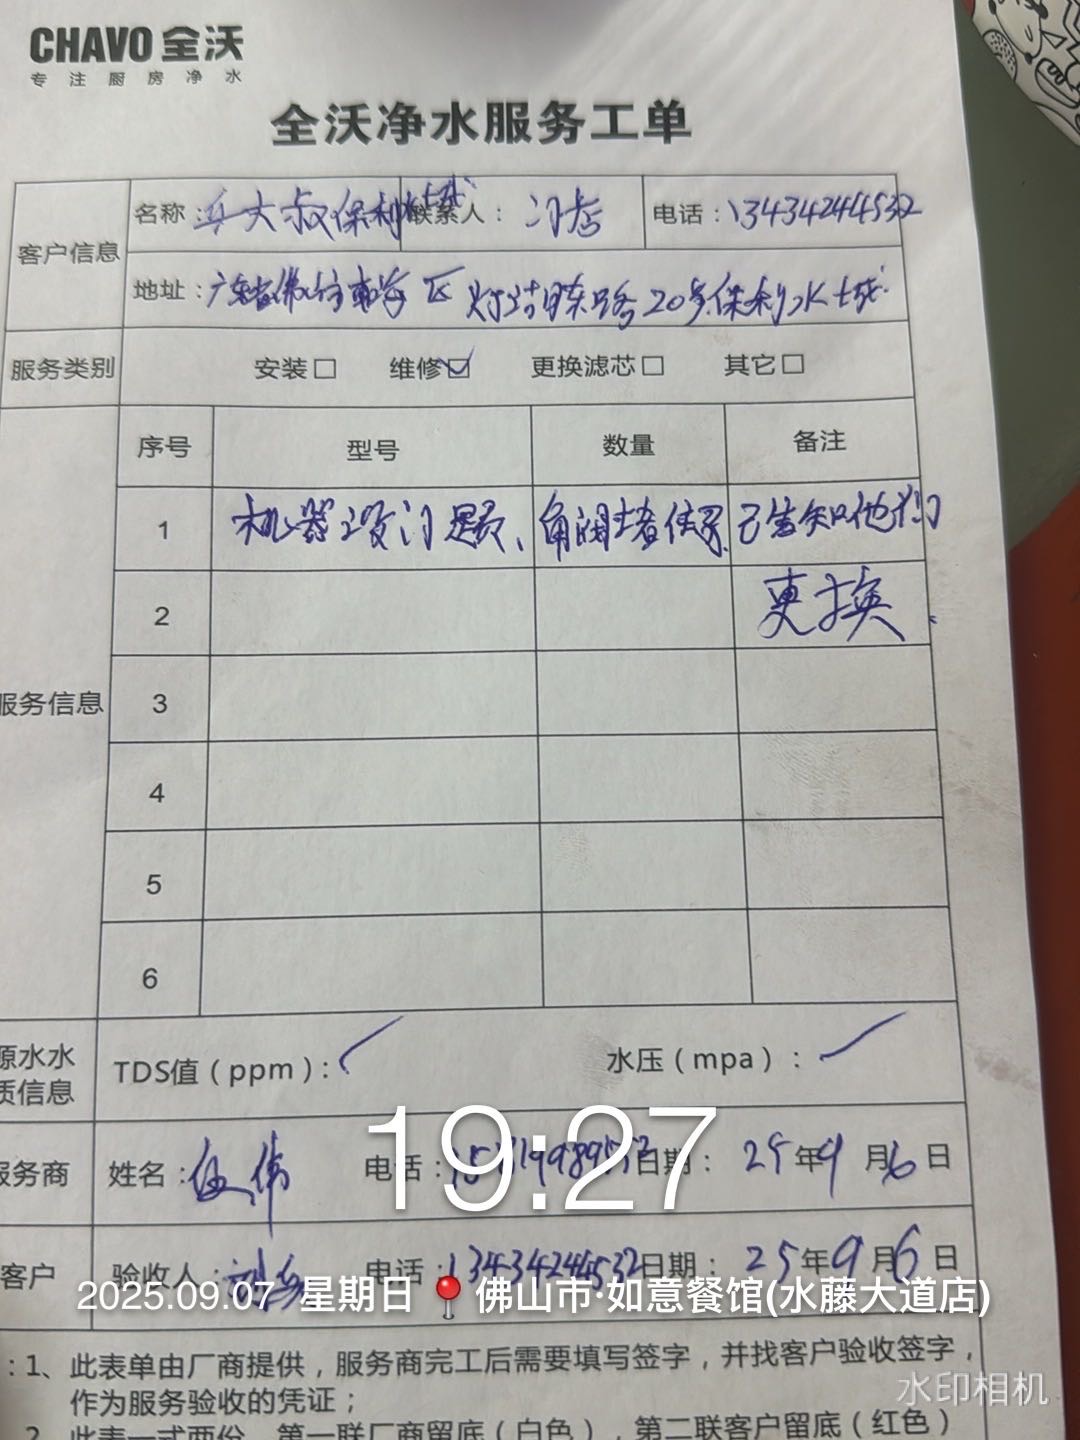 CHAVO 全沃
专注厨房净水
全沃净水服务工单
客户信息
名称：大叔保利水城 联系人：门店 电话：13434244532
地址：广东省佛山市南海区灯湖东路20号保利水城
服务类别 安装□ 维修☑ 更换滤芯□ 其它□
服务信息
序号 型号 数量 备注
1 机器没问题、角阀堵住了、已告知他们
2 更换
3
4
5
6
源水水质信息
TDS值（ppm）： 水压（mpa）：
服务商 姓名：伟 电话： 日期：25年9月6日
19:27
客户 验收人： 电话：13434244532 日期：25年9月6日
2025.09.07 星期日 📍佛山市·如意餐馆(水藤大道店)
：1、此表单由厂商提供，服务商完工后需要填写签字，并找客户验收签字，
作为服务验收的凭证；
2、此表一式两份，第一联厂商留底（白色），第二联客户留底（红色）
水印相机